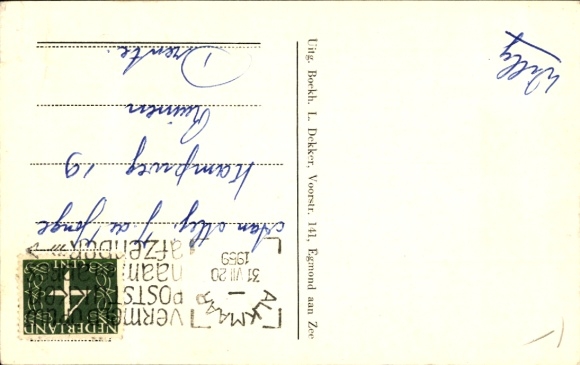 Willy
Uitg. Boekh. L. Dekker, Voorstr. 141, Egmond aan Zee
NEDERLAND
4
CENT
ALKMAAR
31 VII 20
1959
vermeld
POSTSTUKKEN
naam
afzender
Aan Mej. J. de Jonge
Kampweg 19
Ruinen
Drente.